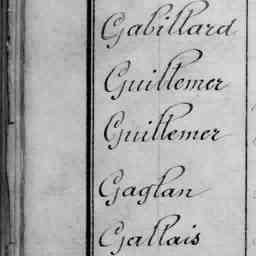 Gabillard
Guillemer
Guillemer
Gaglan
Gallais